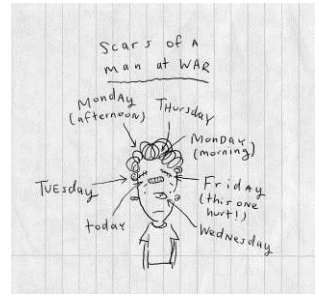 Scars of A
Man at WAR
Monday
(afternoon)
Thursday
Monday
(morning)
Tuesday
Friday
(this one
hurt!)
today
Wednesday